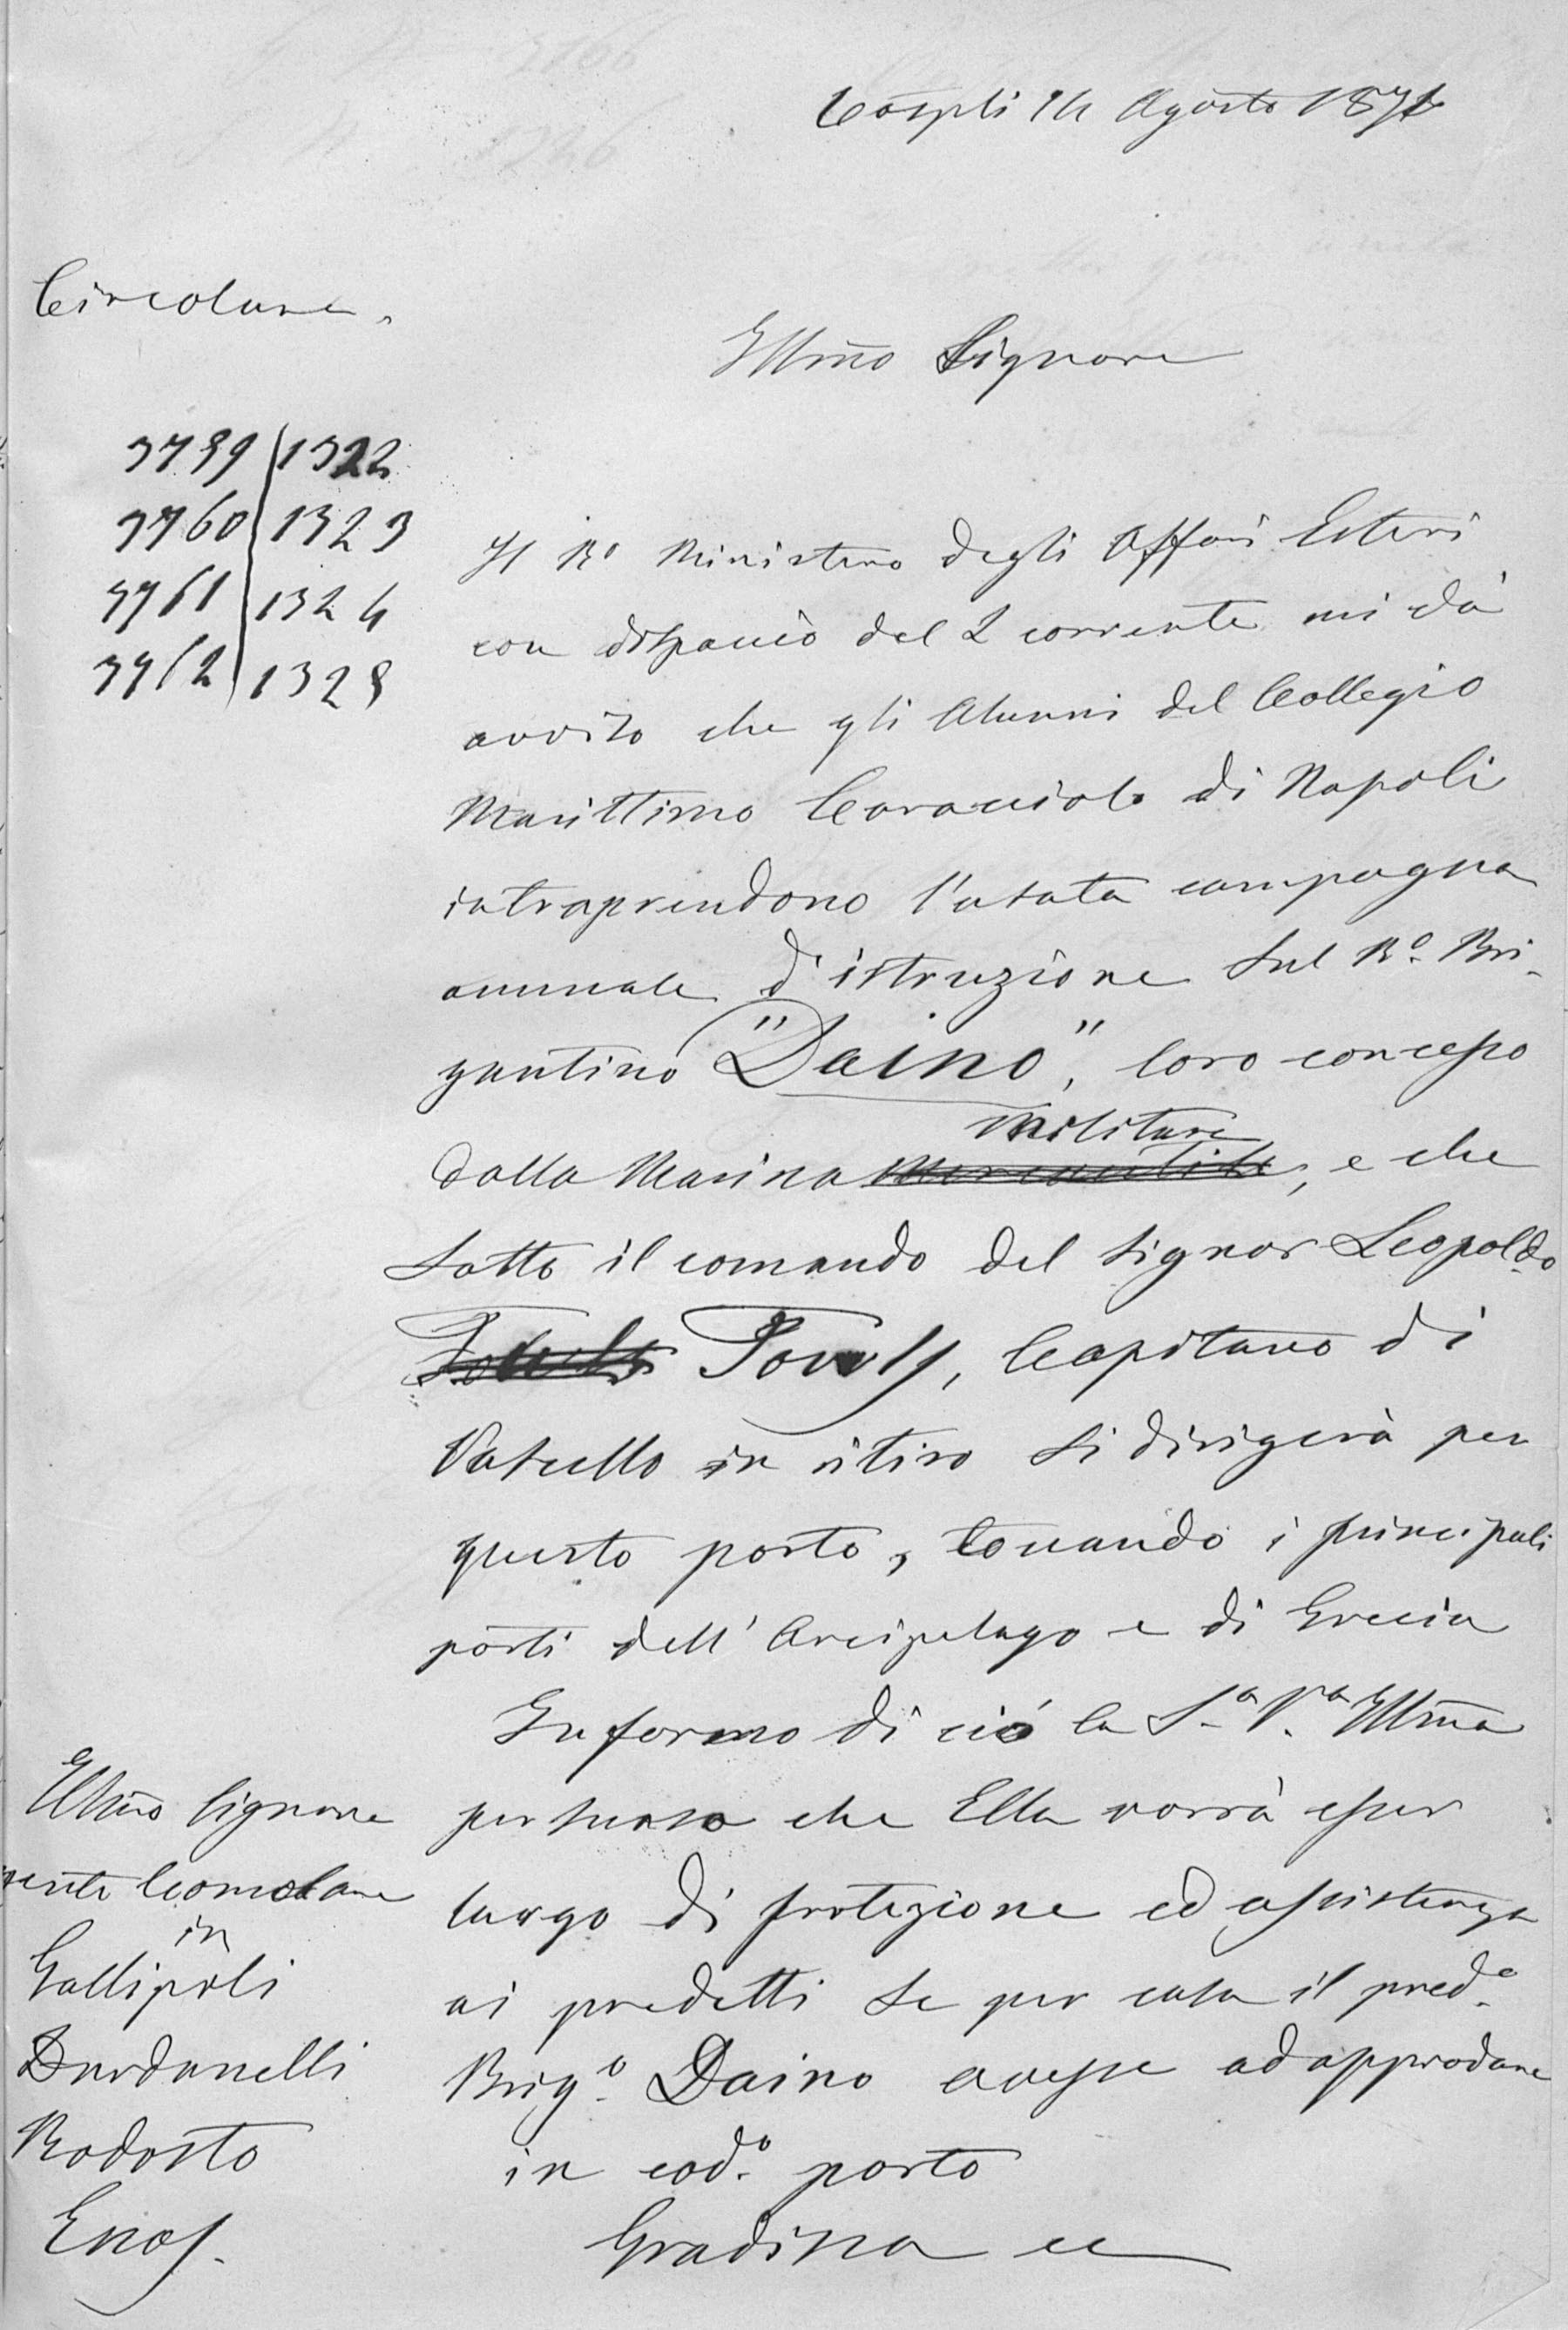 Cospli 14 Agosto 1871
Circolare.
Illmo Signore
3759 | 1322
3760 | 1323
3761 | 1324
3762 | 1325
Il Ro Ministero degli Affari Esteri
con dispaccio del 2 corrente mi dà
avviso che gli Alunni del Collegio
Marittimo Caracciolo di Napoli
intraprendono l'usata campagna
annuale d'istruzione sul Ro. Bri-
gantino "Daino", loro concesso
militare
dalla Marina mercantile, e che
sotto il comando del Signor Leopoldo
Capitano di
Vascello in ritiro si dirigerà per
questo porto, toccando i principali
porti dell'Arcipelago e di Grecia
Informo di ciò la Sa. Va. Illma
persuaso che Ella vorrà esser
largo di protezione ed assistenza
ai predetti se per caso il predo.
Brigo. Daino avesse ad approdare
in codo. porto
Gradisca
Illmo Signore
in
Gallipoli
Dardanelli
Rodosto
Enos.